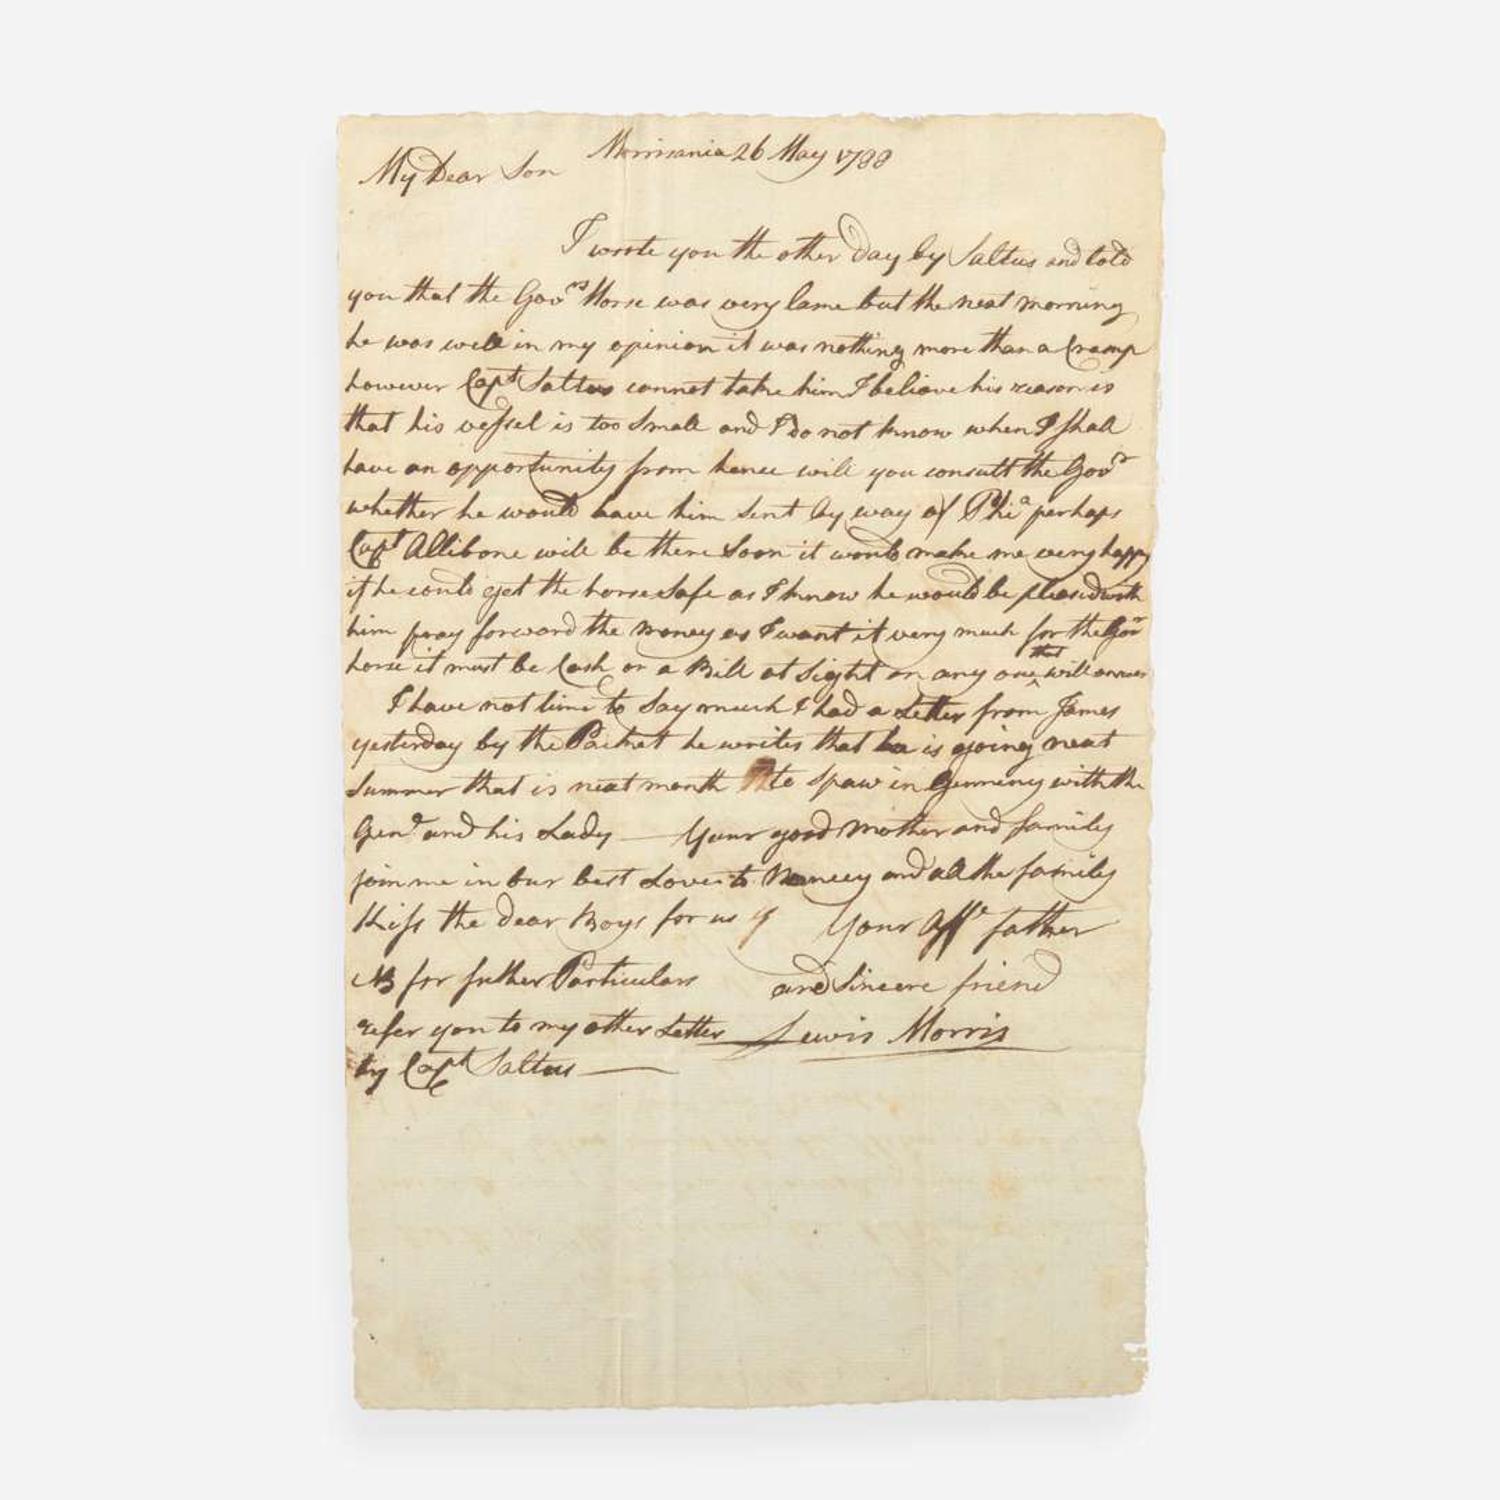 Morrisania 26 May 1788
My Dear Son
I wrote you the other Day by Saltus and told
you that the Govrs Horse was very lame but the next morning
he was well in my opinion it was nothing more than a Cramp
however Capt Saltus cannot take him I believe his reason is
that his vessel is too Small and I do not know when I shall
have an opportunity from hence will you consult the Govr
whether he would have him sent by way of Phia perhaps
Capt Allibone will be there Soon it would make me very happy
if he could get the horse safe as I know he would be pleased with
him pray forward the money as I want it very much for the Govr
horse it must be Cash or a Bill at Sight on any one that will answer
I have not time to Say much I had a Letter from James
yesterday by the Packet he writes that he is going next
Summer that is next month to Spaw in Germeny with the
Genl and his Lady — Your good Mother and family
join me in our best Love to Nancy and all the family
Kiss the dear Boys for us Your Affe father
and Sincere friend
NB for futher Particulars
refer you to my other Letter Lewis Morris
by Capt Saltus —